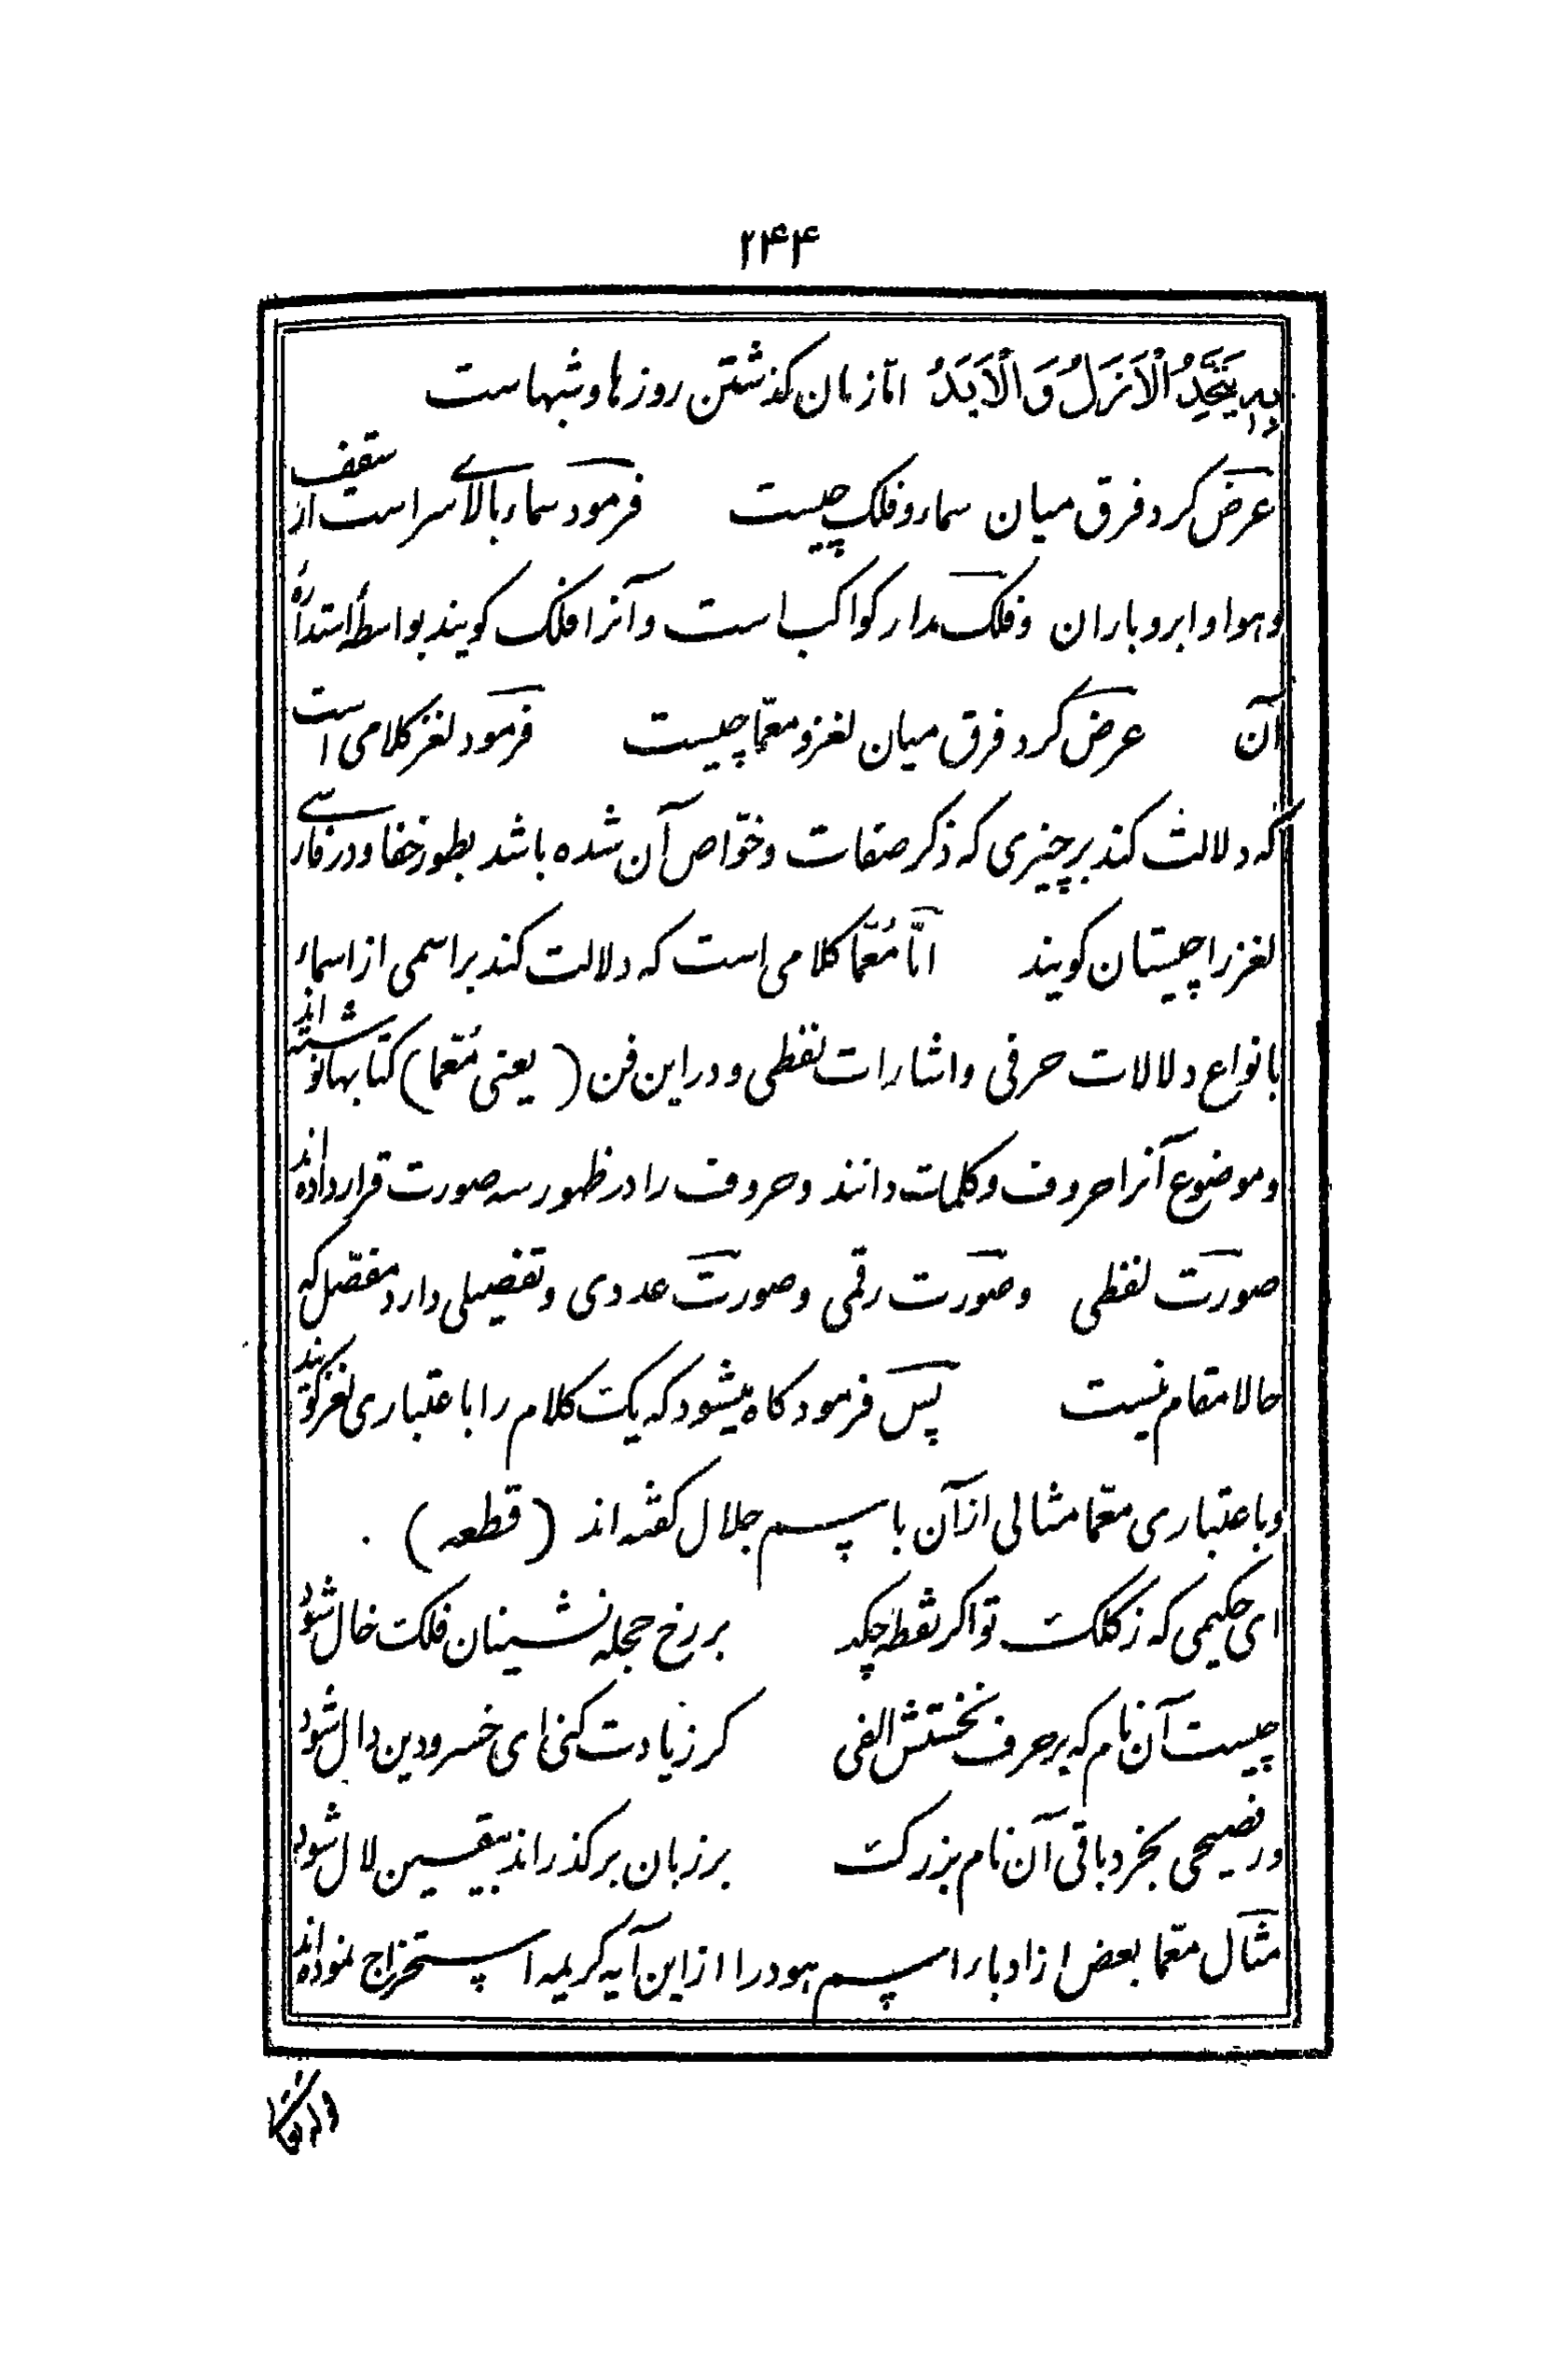 ۲۴۴
بِهِ يَتَّحِدُ الْاَزَلُ وَ الْاَبَدُ امّا زمان کذشتن روزها و شبهاست
عرض کرد فرق میان سماء و فلک چیست فرمود سماء بالای سراست از سقف
و هوا و ابر و باران و فلک مدار کواکب است و آنرا فلک کویند بواسطهٔ استدارهٔ
آن عرض کرد فرق میان لغز و معمّا چیست فرمود لغز کلامی است
که دلالت کند بر چیزی که ذکر صفات و خوّاص آن شده باشد بطور خفا و در فارسی
لغز را چیستان کویند امّا مُعمّا کلامی است که دلالت کند بر اسمی از اسماء
بانواع دلالات حرفی و اشارات لفظی و در این فن ( یعنی مُعّما ) کتابها نوشته‌اند
و موضوع آنرا حروف و کلمات دانند و حروف را در ظهور سه صورت قرار داده‌اند
صورت لفظی و صورت رقمی و صورت عددی و تفصیلی دارد مفصّل که
حالا مقام نیست پس فرمود کاه میشود که یک کلام را باعتباری لغز کویند
و باعتباری معّما مثالی از آن باسم جلال کفته اند ( قطعه ) .
ای حکیمی که ز کلک تو اکر نقطه چکد بر رخ حجله نشینان فلک خال شود
چیست آن نام که بر حرف نخستش الفی کر زیادت کنی ای خسرو دین دال شود
ور فصیحی بخرد باقی آن نام بزرک بر زبان بر کذراند بیقین لال شود
مثال معّما بعض از ادبا را اسم هود را از این آیه کریمه استخراج نموده‌اند